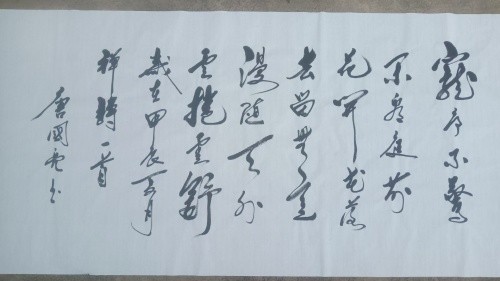 寵辱不驚
闲看庭前
花開花落
去留無意
漫随天外
雲捲雲舒
歲在甲辰月
禅詩一首
唐國亮书